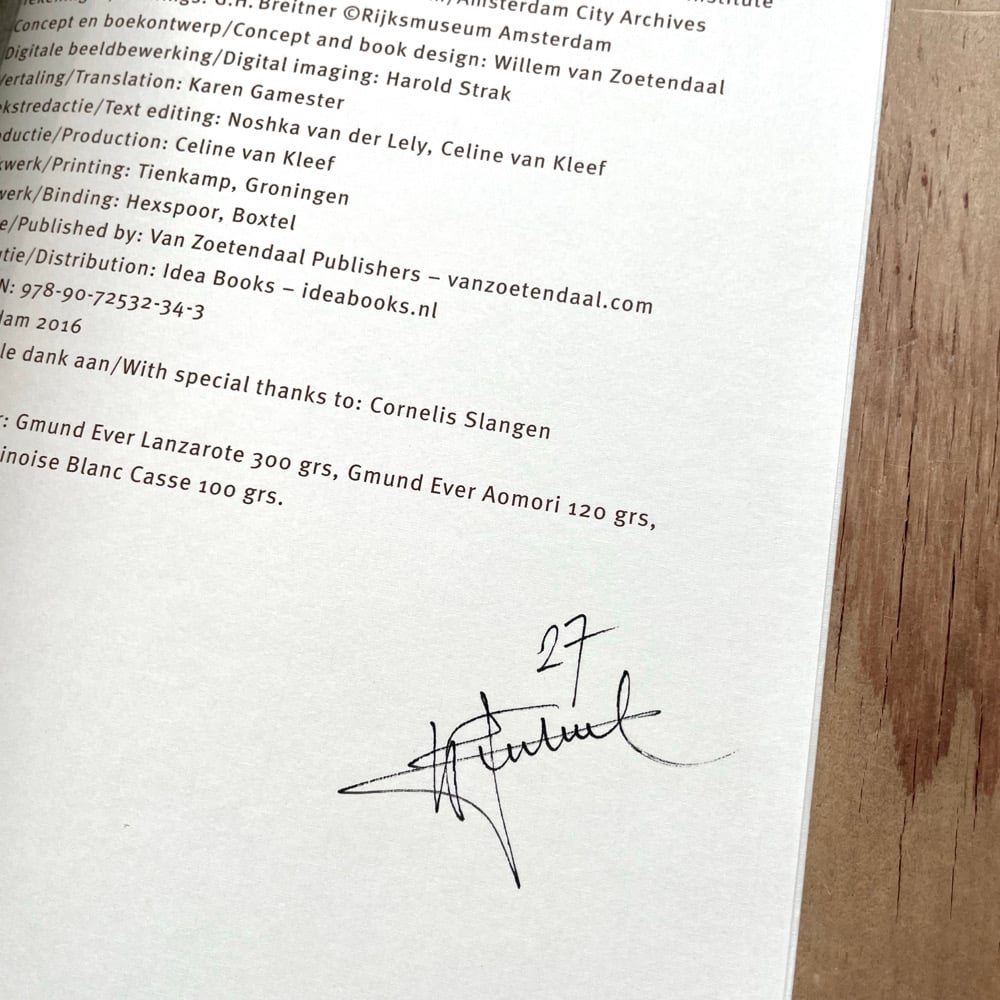 Institute
Amsterdam City Archives
G.H. Breitner ©Rijksmuseum Amsterdam
Concept en boekontwerp/Concept and book design: Willem van Zoetendaal
Digitale beeldbewerking/Digital imaging: Harold Strak
Vertaling/Translation: Karen Gamester
kstredactie/Text editing: Noshka van der Lely, Celine van Kleef
ductie/Production: Celine van Kleef
werk/Printing: Tienkamp, Groningen
werk/Binding: Hexspoor, Boxtel
e/Published by: Van Zoetendaal Publishers – vanzoetendaal.com
tie/Distribution: Idea Books – ideabooks.nl
N: 978-90-72532-34-3
dam 2016
le dank aan/With special thanks to: Cornelis Slangen
r: Gmund Ever Lanzarote 300 grs, Gmund Ever Aomori 120 grs,
inoise Blanc Casse 100 grs.
27